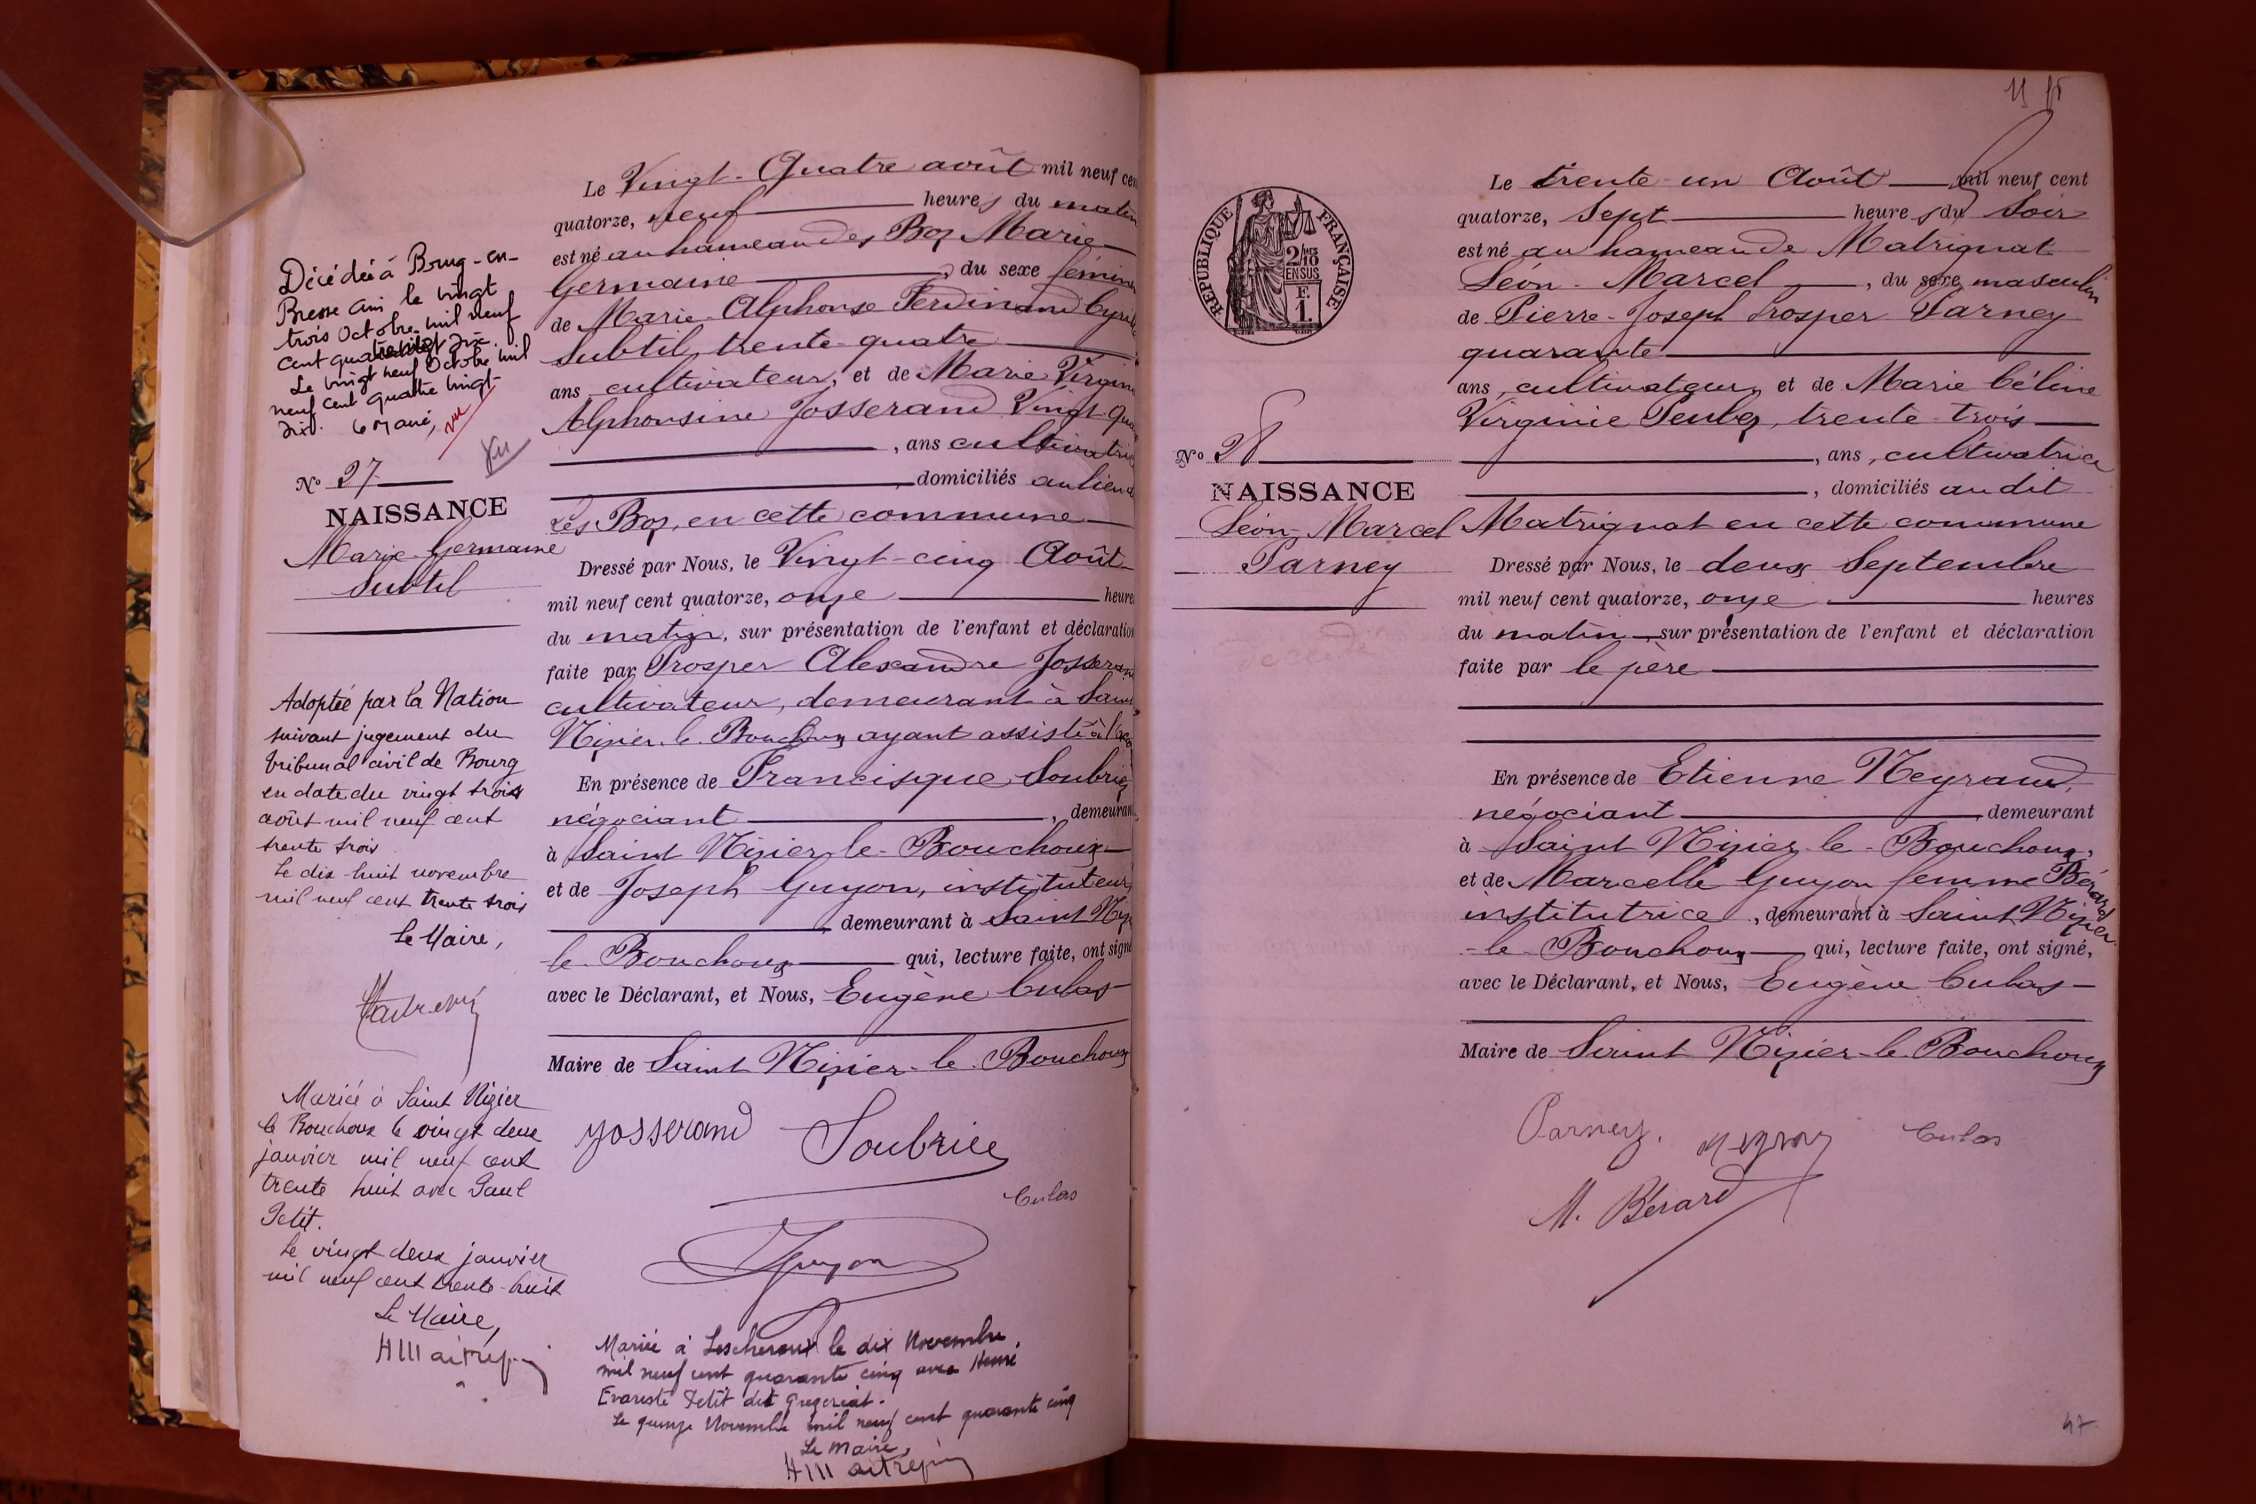 Décédée à Bourg-en-
Bresse Ain le vingt
trois Octobre mil neuf
cent quatre vingt dix.
Le vingt neuf Octobre mil
neuf cent quatre vingt-
dix. Le Maire,
Vu
Vu
N° 27
NAISSANCE
Marie-Germaine
Subtil
Adoptée par la Nation
suivant jugement du
tribunal civil de Bourg
en date du vingt trois
août mil neuf cent
trente trois
Le dix-huit novembre
mil neuf cent trente trois
Le Maire,
Mariée à Saint Nizier
le Bouchoux le vingt deux
janvier mil neuf cent
trente huit avec Paul
Petit.
Le vingt deux janvier
mil neuf cent trente-huit
Le Maire,
Le Vingt-Quatre août mil neuf cen
quatorze, neuf heures du matin
est né au hameau des Boz Marie-
Germaine, du sexe fémin
de Marie-Alphonse Ferdinand Cyrille
Subtil, trente-quatre
ans, cultivateur, et de Marie Virgin
Alphonsine Josserand Vingt-qua
, ans cultivatric
, domiciliés au lieu d
Les Boz, en cette commune
Dressé par Nous, le Vingt-cinq Août
mil neuf cent quatorze, onze heure
du matin, sur présentation de l'enfant et déclaration
faite par Prosper Alexandre Josseran
cultivateur, demeurant à Saint
Nizier-le-Bouchoux ayant assisté à l'acc
En présence de Francisque Soubrier
négociant, demeuran
à Saint Nizier-le-Bouchoux
et de Joseph Guyon, instituteur
, demeurant à Saint Niz
le-Bouchoux qui, lecture faite, ont signé
avec le Déclarant, et Nous, Eugène Culas
Maire de Saint Nizier-le-Bouchoux
Josserand
Soubrier
Culas
Guyon
Mariée à Lescheroux le dix Novembre
mil neuf cent quarante cinq avec Henri
Evariste Petit dit Gregoriat.
Le quinze Novembre mil neuf cent quarante cinq
Le Maire,
RÉPUBLIQUE FRANÇAISE
2/10 EN SUS
F.
1.
N° 28
NAISSANCE
Léon-Marcel
Parney
Le trente-un Août mil neuf cent
quatorze, Sept heures du Soir
est né au hameau de Matrignat
Léon-Marcel, du sexe masculin
de Pierre-Joseph Prosper Parney
quarante
ans, cultivateur, et de Marie Céline
Virginie Teulez, trente-trois
, ans, cultivatrice
, domiciliés au dit
Matrignat en cette commune
Dressé par Nous, le deux Septembre
mil neuf cent quatorze, onze heures
du matin, sur présentation de l'enfant et déclaration
faite par le père
En présence de Etienne Neyraud,
négociant demeurant
à Saint Nizier-le-Bouchoux,
et de Marcelle Guyon femme Bérard
institutrice, demeurant à Saint Nizier
-le-Bouchoux qui, lecture faite, ont signé,
avec le Déclarant, et Nous, Eugène Culas
Maire de Saint Nizier-le-Bouchoux
Parney.
Culas
M. Bérard
47